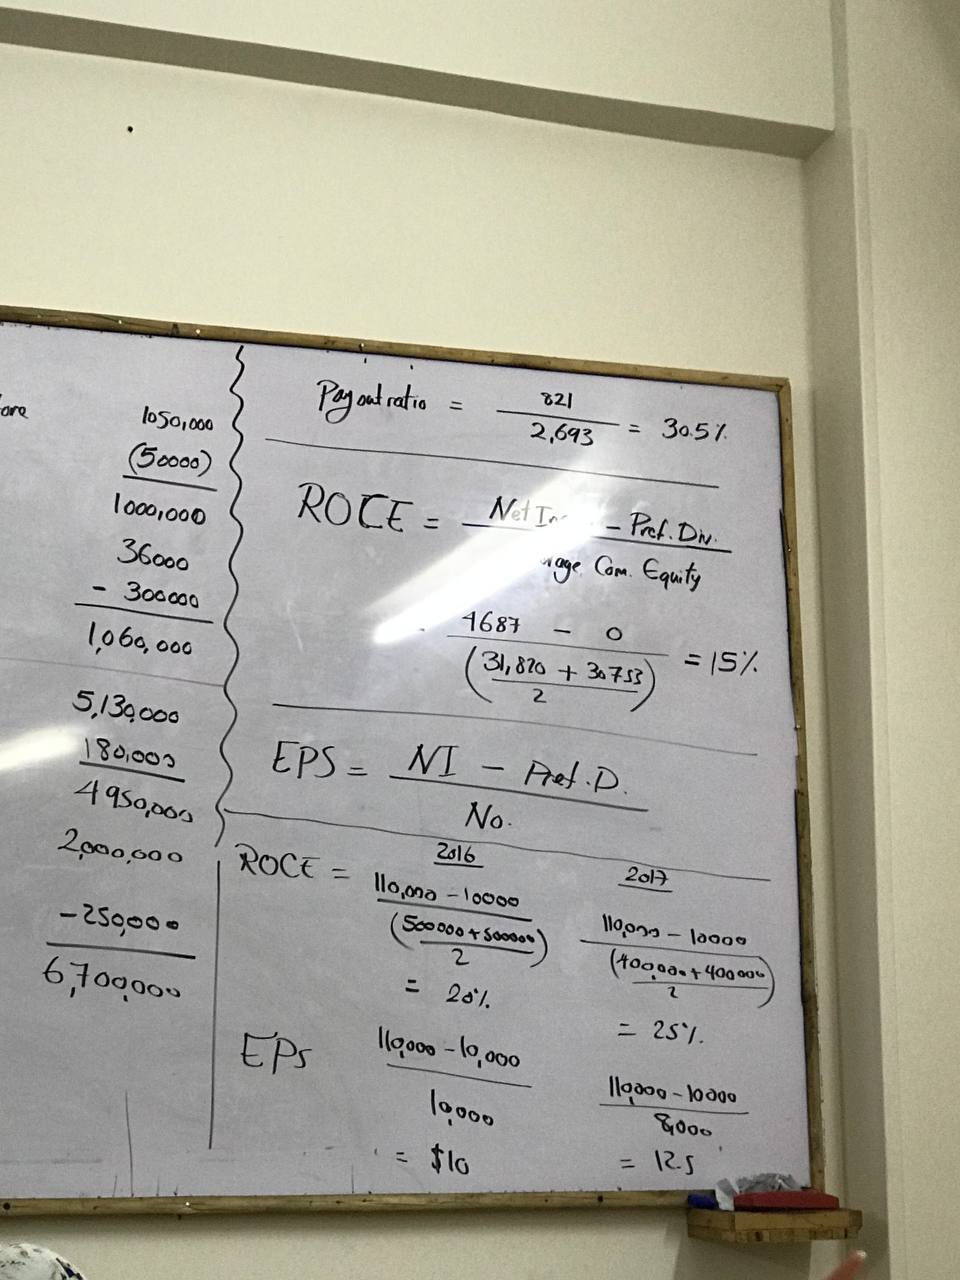 1050,000
(50000)
1000,000
36000
- 300000
1,060,000
5,130,000
180,000
4950,000
2,000,000
-250,000
6,700,000
Pay out ratio = 821 / 2,693 = 30.5%
ROCE = Net - Pref. Div.
Com. Equity
4687 - 0
(31,820 + 30753 / 2) = 15%
EPS = NI - Pref. D.
No.
2016
2017
ROCE =
110,000 - 10000
(500000 + 500000)
2
= 20%
110,000 - 10000
(400,000 + 400000)
2
= 25%
EPS
110,000 - 10,000
10,000
= $10
110,000 - 10000
8,000
= 12.5